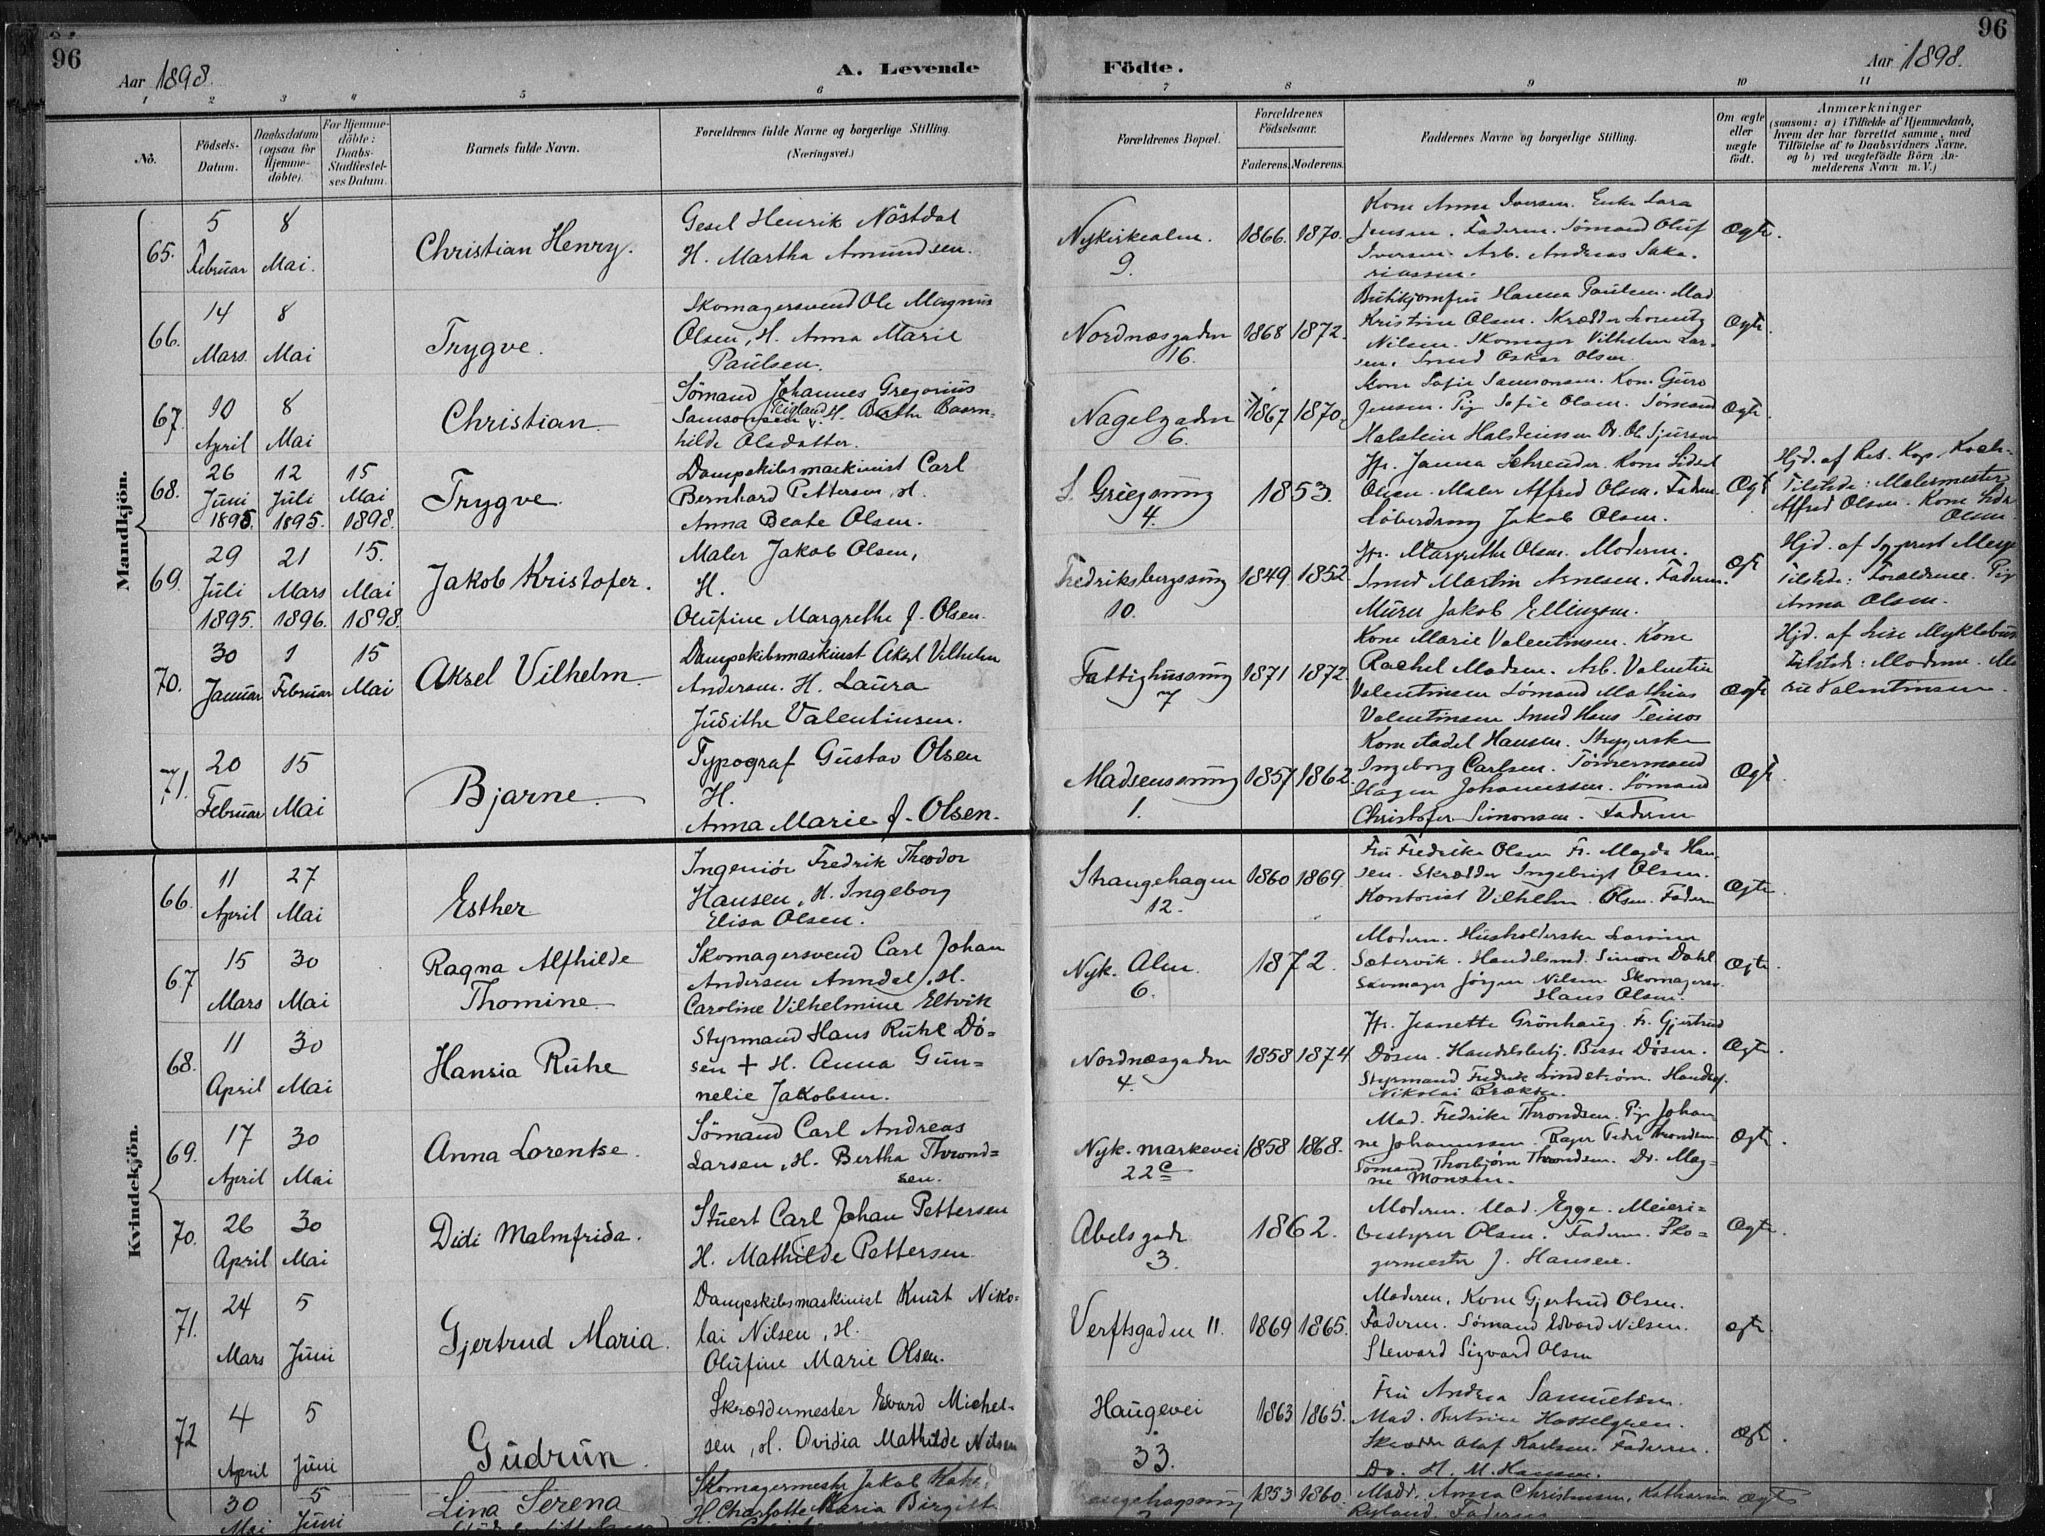 96
96
Aar 1898.
A. Levende
Födte.
Aar 1898.
1 2 3 4 5 6 7 8 9 10 11
No.
Födsels-
Datum.
Daabsdatum
(ogsaa for
Hjemme-
döbte).
For Hjemme-
döbte:
Daabs-
Stadfæstel-
ses Datum.
Barnets fulde Navn.
Forældrenes fulde Navne og borgerlige Stilling.
(Næringsvei.)
Forældrenes Bopæl.
Forældrenes
Födselsaar.
Faderens. Moderens.
Faddernes Navne og borgerlige Stilling.
Om ægte
eller
uægte
födt.
Anmærkninger
(saasom: a) i Tilfælde af Hjemmedaab,
hvem der har forrettet samme, med
Tilföielse af to Daabsvidners Navne.
og b) ved uægtefödte Börn An-
melderens Navn m.V.)
Mandkjön.
65.
5
Februar
8
Mai.
Christian Henry.
Gesel Henrik Nöstdal
H. Martha Amundsen.
Nykirkealm.
9.
1866. 1870.
Kone Anna Iversen. Enke Lara
Jensen. Faderen. Sømand Oluf
Iversen. Arb. Andreas Saka-
riassen.
Ægte.
66.
14
Mars.
8
Mai
Trygve.
Skomagersvend Ole Magnus
Olsen, H. Anna Marie
Paulsen.
Nordnæsgaden
16.
1868 1872.
Butikjomfru Hanna Paulsen. Mad
Kristine Olsen. Skrædder Lorentz
Nilsen. Skomager Vilhelm Lar-
sen. Smed Oskar Olsen.
Ægte.
67.
10
April
8
Mai
Christian.
Sömand Johannes Gregorius
Samsonsen H.
hilde Olsdatter.
Nagelgaden
6.
1867 1870.
Kone Sofie Samsonsen. Kone Guro
Jensen. Pige Sofie Olsen. Sømand
Halstein Halsteinsen Do. Ole Sjursen
Ægte.
68.
26
Juni
1895.
12
Juli
1895.
15
Mai
1898.
Trygve.
Dampskibsmaskinist Carl
Bernhard Pettersen, H.
Anna Beate Olsen.
S. Griegsmug
4.
1853.
Jfr. Janna Schreuder. Kone
Olsen. Maler Alfred Olsen. Faderen.
Jakob Olsen.
Ægte
Hjd. af Res. Kap. Koch-
Tilstede: Malermester
Alfred Olsen. Kone
Olsen
69.
29
Juli
1895.
21
Mars
1896.
15.
Mai
1898.
Jakob Kristofer.
Maler Jakob Olsen,
H.
Olufine Margrethe f. Olsen.
Fredriksbergssmug
10.
1849 1852.
Jfr. Margrethe Olsen. Moderen.
Smed Martin Arnesen. Faderen.
Murer Jakob Ellingsen.
Hjd. af Sygeprest
Tilstede: Forældrene. Pige
Anna Olsen.
70.
30
Januar
1
Februar
15
Mai
Aksel Vilhelm.
Dampskibsmaskinist Aksel Vilhelm
Andersen. H. Laura
Judithe Valentinsen.
Fattighussmug
7
1871 1872.
Kone Marie Valentinsen. Kone
Rachel Madsen. Arb. Valentin
Valentinsen Sømand Mathias
Valentinsen Smed Hans
Ægte
Hjd. af Lise Myklebust
Tilstede: Moderen.
Valentinsen.
71.
20
Februar
15
Mai
Bjarne.
Typograf Gustav Olsen
H.
Anna Marie f. Olsen.
Madsenssmug
1.
1857 1862.
Kone Hansen. Strygerske
Ingeborg Carlsen. Tömermand
Hagen Johannessen. Sømand
Christofer Simonsen. Faderen
Ægte.
Kvindekjön.
66.
11
April
27
Mai
Esther
Ingeniör Fredrik Theodor
Hansen, H. Ingeborg
Elisa Olsen.
Strangehagen
12.
1860 1869.
Fru Fredrikke Olsen Fr. Magda Han-
sen. Skrædder Ingebrigt Olsen.
Kontorist Vilhelm Olsen. Faderen
Ægte.
67
15
Mars
30
Mai
Ragna Alfhilde
Thomine.
Skomagersvend Carl Johan
Andersen Anndal, H.
Caroline Vilhelmine Eltvik
Nyk. Alm.
6.
1872.
Moderen. Husholderske
Sætervik. Handelsmd. Simon Dahl
Skomager Jørgen Nilsen. Skomagersv.
Hans Olsen.
Ægte.
68.
11
April
30
Mai
Hansia Ruhe
Styrmand Hans Ruhe Dö-
sen + H. Anna Gun-
nelie Jakobsen.
Nordnæsgaden
4.
1858 1874
Jfr. Jeanette Grönhaug. Fr. Gjertrud
Dösen. Handelsbetj. Dösen.
Styrmand Fredrik Lindstrøm.
Nikolai
Ægte.
69.
17
April
30
Mai
Anna Lorentse.
Sömand Carl Andreas
Larsen, H. Bertha Thrond-
sen.
Nyk. markevei
22c
1858 1868.
Mad. Fredrikke Throndsen. Pige Johan
ne Johannessen. Bager Peder Throndsen
Sømand Thorbjørn Throndsen. Do. Mag-
ne Monsen.
Ægte.
70.
26
April
30
Mai
Didi Malmfrida.
Stuert Carl Johan Pettersen
H. Mathilde Pettersen
Abelsgade
3.
1862.
Moderen. Mad. Egge. Meieri-
bestyrer Olsen. Faderen. Sko-
germester J. Hansen.
Ægte.
71.
24
Mars
5
Juni
Gjertrud Maria.
Dampskibsmaskinist Knut Niko-
lai Nilsen, H.
Olufine Marie Olsen.
Verftsgaden 11.
1869 1865.
Moderen. Kone Gjertrud Olsen.
Faderen. Sømand Edvard Nilsen.
Steward Sigvard Olsen
Ægte.
72
4
April
5
Juni
Gudrun.
Skræddermester Edvard Michel-
sen, H. Ovidia Mathilde Nilsen
Haugevei
33.
1863 1865.
Fru Andrea Samuelsen.
Mad. Hasselgreen.
Olaf Karlsen. Faderen.
Do. H. M. Hansen.
Ægte.
30
Mai
5
Juni
Lina Serena
Skomagermester Jakob
H. Charlotte Maria Birgitt
1853 1860.
Madd. Anna Christensen, Katharina
Ryland Faderen
Ægte